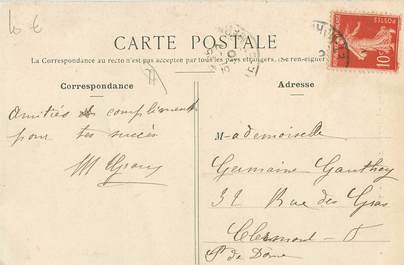 10 €
CARTE POSTALE
La Correspondance au recto n'est pas acceptée par tous pays étrangers. (Se renseigner
Correspondance
Adresse
POSTES
10
amitiés & compliments
pour tes succès
M-ademoiselle
Germaine Gauthey
32 Rue des Gras
Clermont-F
P. de Dôme